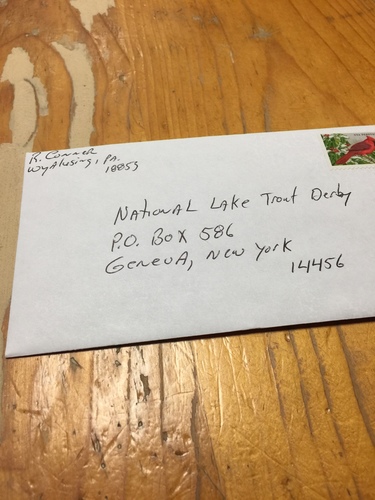 R. Conner
Wyalusing, PA.
18853
National Lake Trout Derby
P.O. Box 586
Geneva, New York
14456